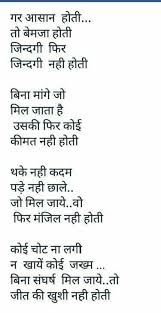 गर आसान  होती...
तो बेमजा होती
जिन्दगी  फिर
जिन्दगी  नही होती
बिना मांगे जो
मिल जाता है
उसकी फिर कोई
कीमत नही होती
थके नही कदम
पड़े नही छाले..
जो मिल जाये..वो
फिर मंजिल नही होती
कोई चोट ना लगी
न  खायें कोई  जख्म ...
बिना संघर्ष  मिल जाये..तो
जीत की खुशी नही होती